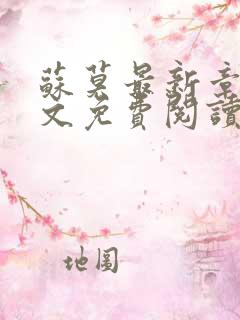 蘇莫最新章
文免費閱讀
地圖